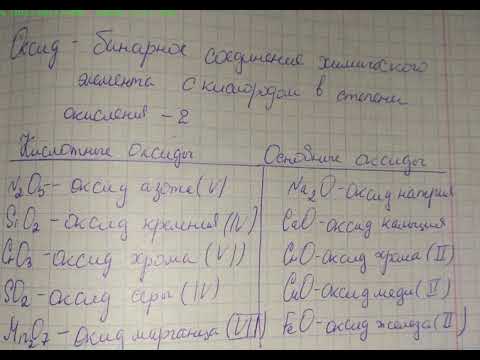 Оксид - бинарное соединение химического
элемента с кислородом в степени
окисления -2
Кислотные оксиды Основные оксиды
N₂O₅ - оксид азота (V) Na₂O - оксид натрия
SiO₂ - оксид кремния (IV) CaO - оксид кальция
CrO₃ - оксид хрома (VI) CrO - оксид хрома (II)
SO₂ - оксид серы (IV) CuO - оксид меди (II)
Mn₂O₇ - оксид марганца (VII) FeO - оксид железа (II)